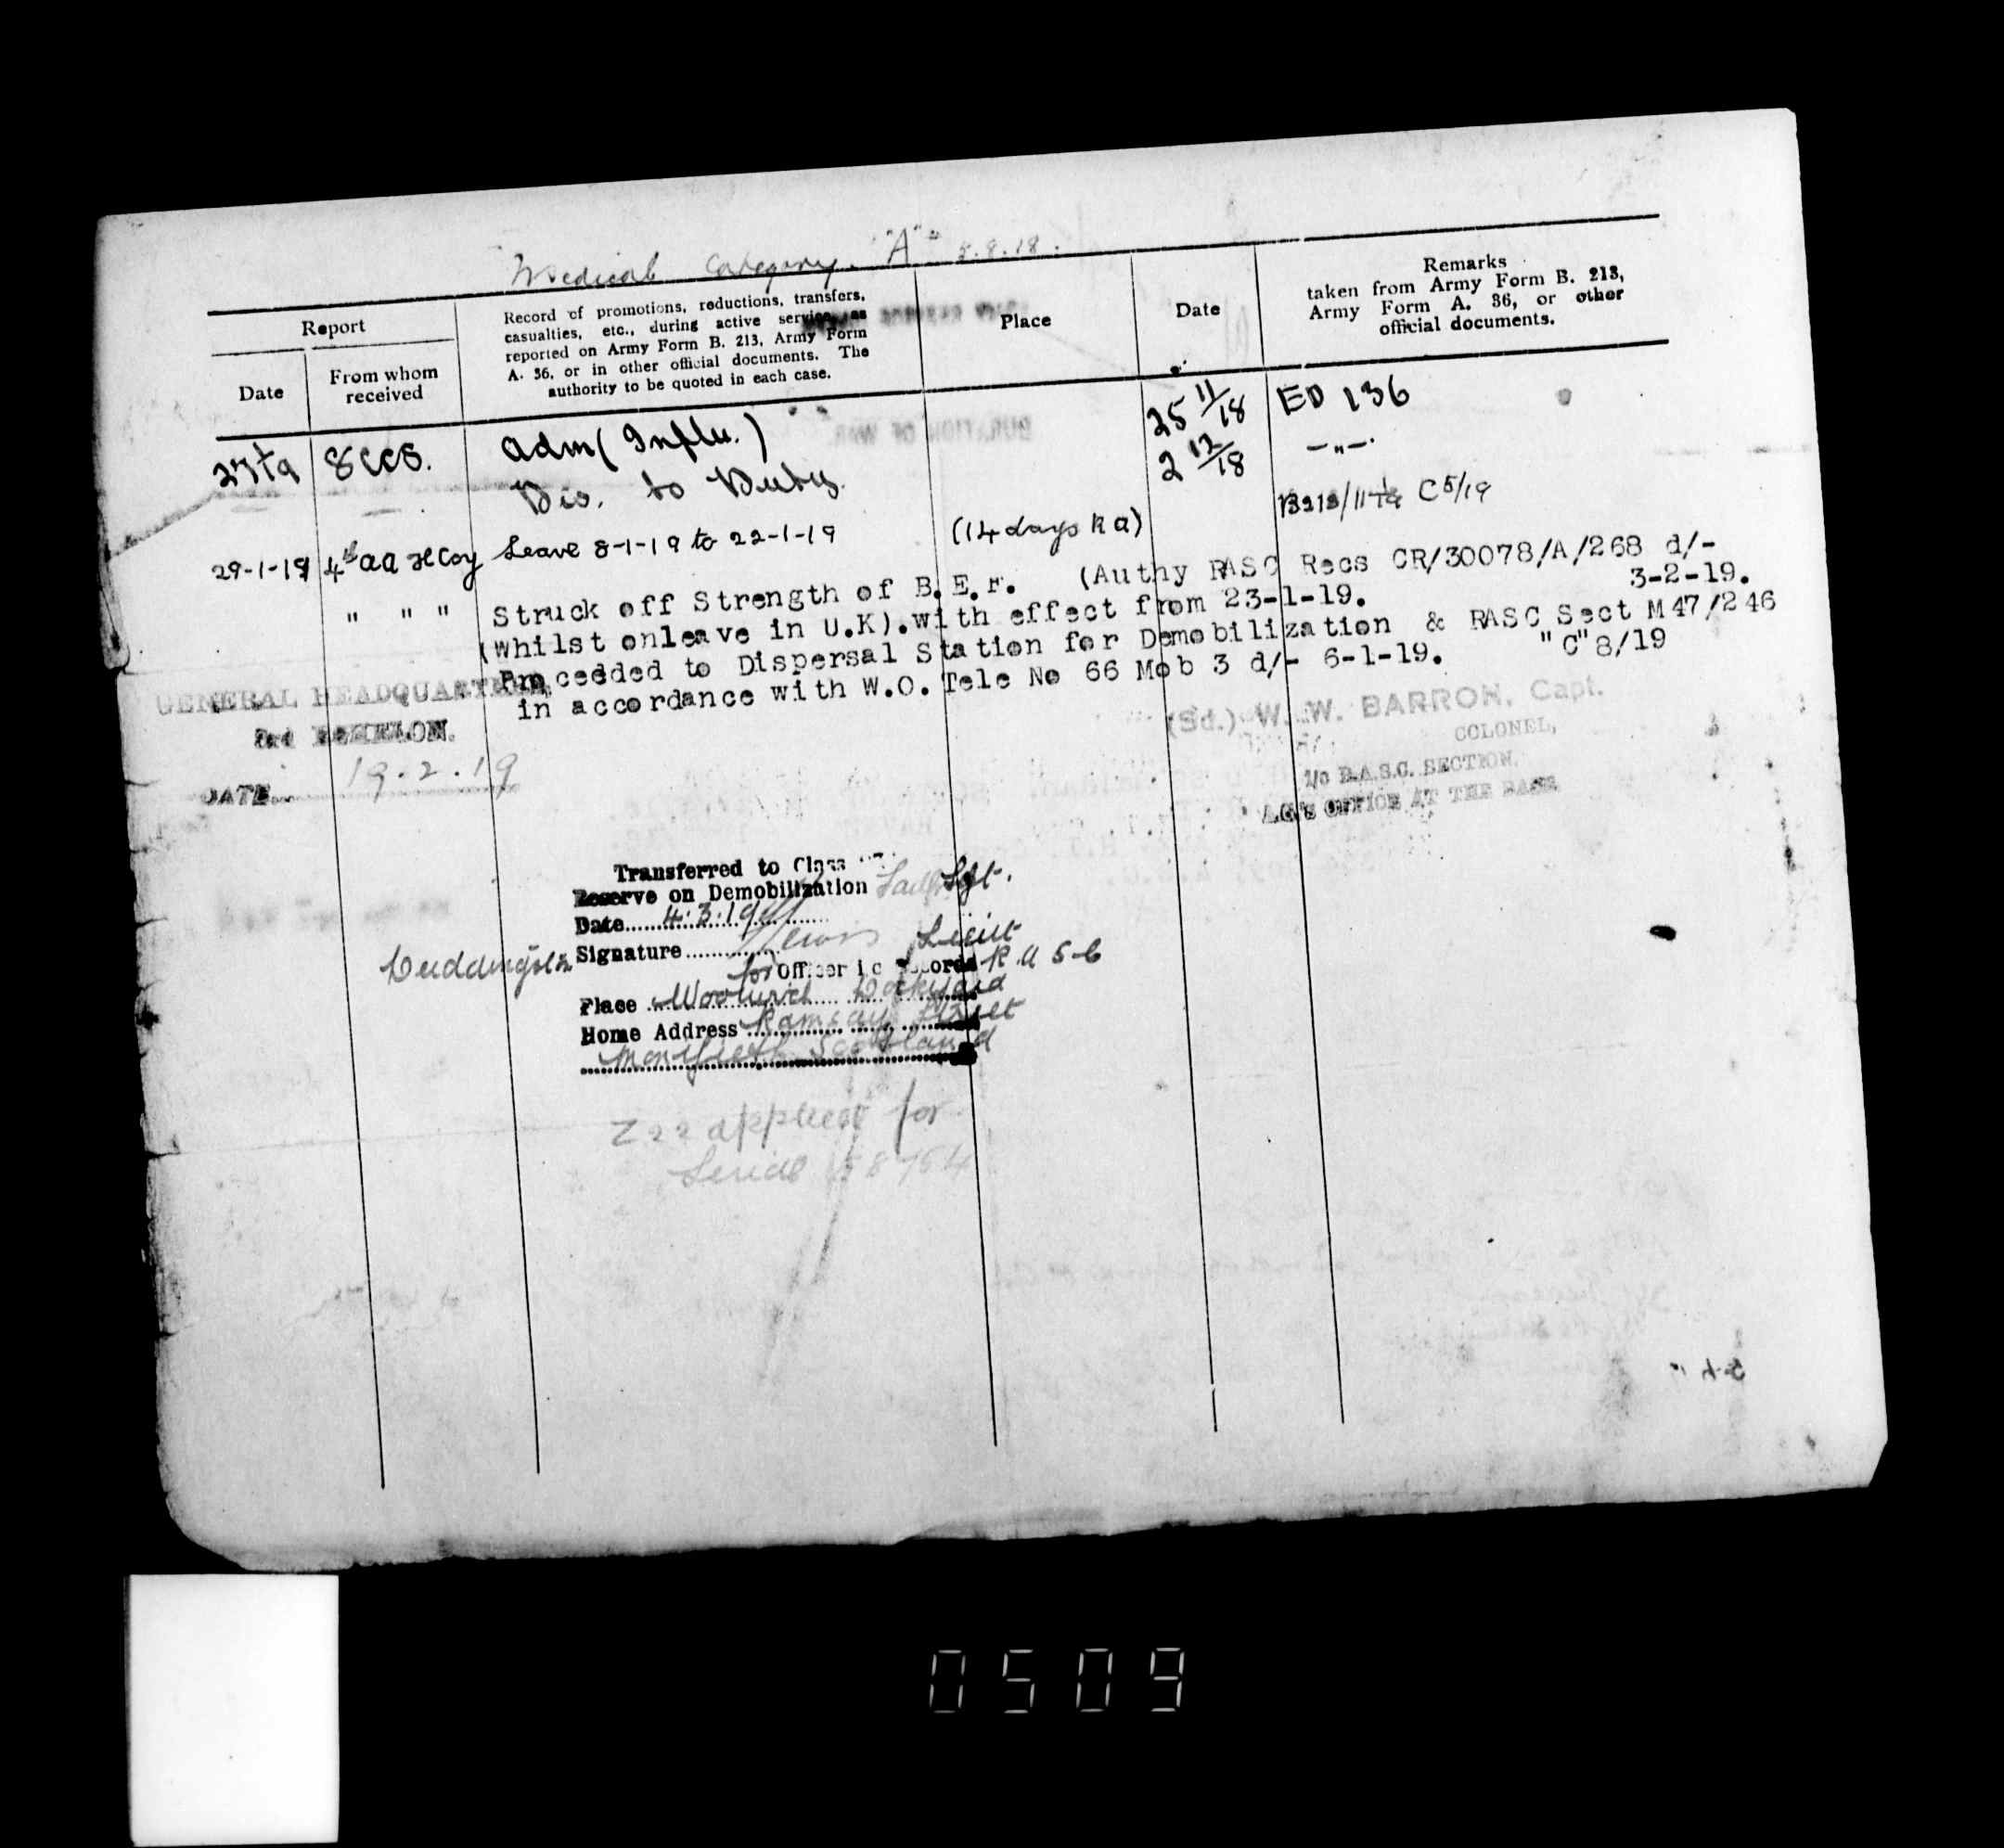 Medical Category. "A" 5.8.18.
Report
Date
From whom
received
Record of promotions, reductions, transfers,
casualties, etc., during active service, as
reported on Army Form B. 213, Army Form
A. 36, or in other official documents. The
authority to be quoted in each case.
Place
Date
Remarks
taken from Army Form B. 213,
Army Form A. 36, or other
official documents.
8 CCS. Adm ( Influ. ) 25 11/18 ED 136
Dis. to Duty. 2 12/18 -"-
DURATION OF WAR
29-1-19 4th aa H Coy Leave 8-1-19 to 22-1-19 (14 days R a) C 5/19
" " " Struck off Strength of B.E.F. (Authy RASC Recs CR/30078/A/268 d/-
3-2-19.
(Whilst onleave in U.K).with effect from 23-1-19.
Proceeded to Dispersal Station for Demobilization & RASC Sect M 47/246
in accordance with W.O. Tele No 66 Mob 3 d/- 6-1-19. "C" 8/19
GENERAL HEADQUARTERS,
3rd ECHELON.
DATE... 19.2.19
(Sd.) W. W. BARRON, Capt.
COLONEL,
i/c R.A.S.C. SECTION,
A.G's OFFICE AT THE BASE
Transferred to Class
Reserve on Demobilization Sgt.
Date....4.3.19
Signature Lieut
for Officer i c Records R.A.S.C
Place Woolwich Dockyard
Home Address Ramsay Street
Monifieth Scotland
Z22 applied for
Serial 58754
0509